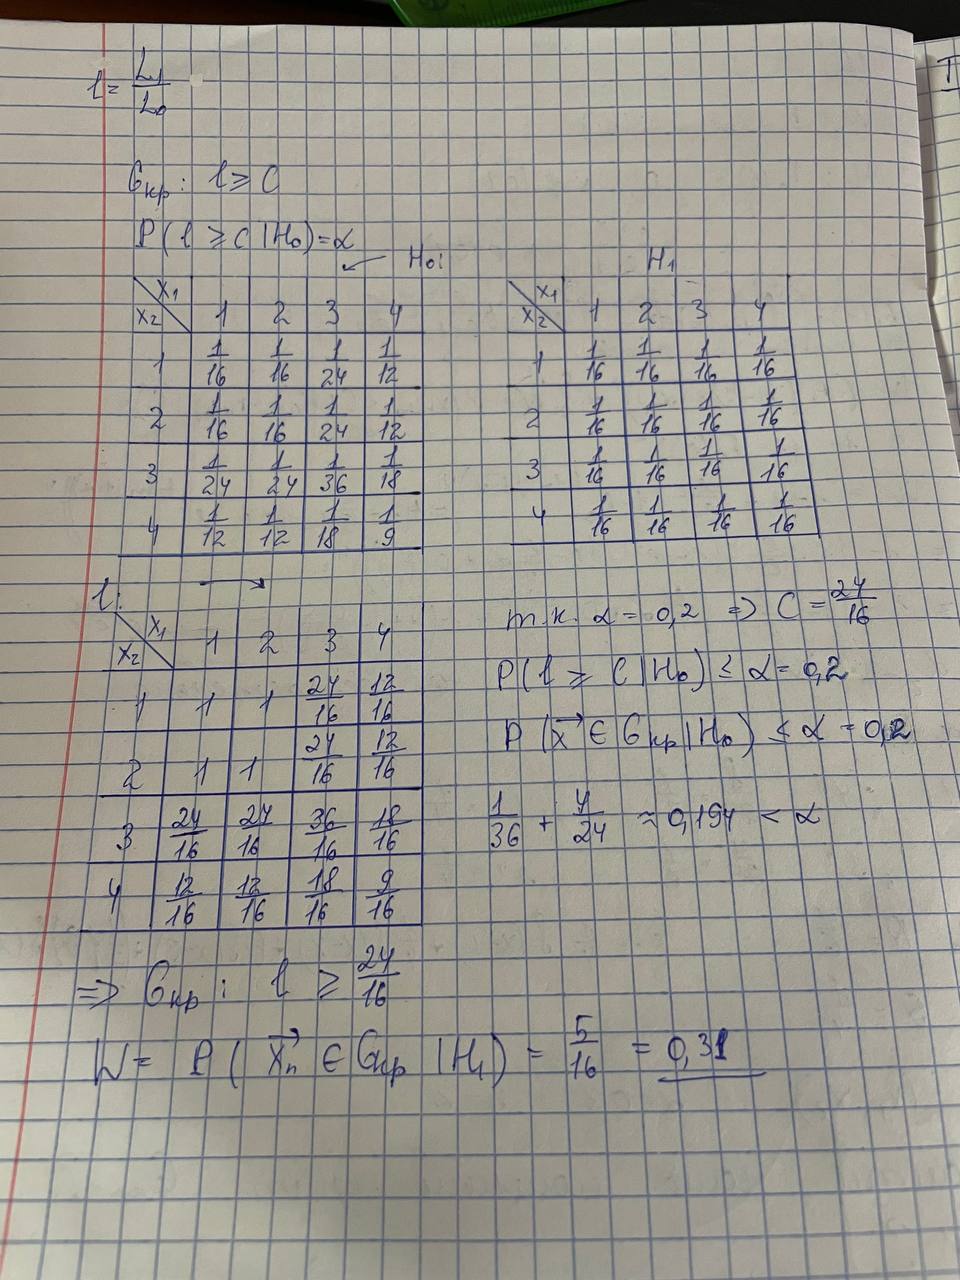 l = L₁/L₀
Gкр: l ≥ C
P(l ≥ C | H₀) = α
H₀:
X₁ 1 2 3 4
X₂
1 1/16 1/16 1/24 1/12
2 1/16 1/16 1/24 1/12
3 1/24 1/24 1/36 1/18
4 1/12 1/12 1/18 1/9
H₁
X₁ 1 2 3 4
X₂
1 1/16 1/16 1/16 1/16
2 1/16 1/16 1/16 1/16
3 1/16 1/16 1/16 1/16
4 1/16 1/16 1/16 1/16
l:
X₁ 1 2 3 4
X₂
1 1 1 24/16 12/16
2 1 1 24/16 12/16
3 24/16 24/16 36/16 18/16
4 12/16 12/16 18/16 9/16
т.к. α = 0,2 ⇒ C = 24/16
P(l ≥ C | H₀) ≤ α = 0,2
P(x⃗ ∈ Gкр | H₀) ≤ α = 0,2
1/36 + 4/24 ≈ 0,194 < α
⇒ Gкр: l ≥ 24/16
W = P(x⃗ₙ ∈ Gкр | H₁) = 5/16 = 0,31